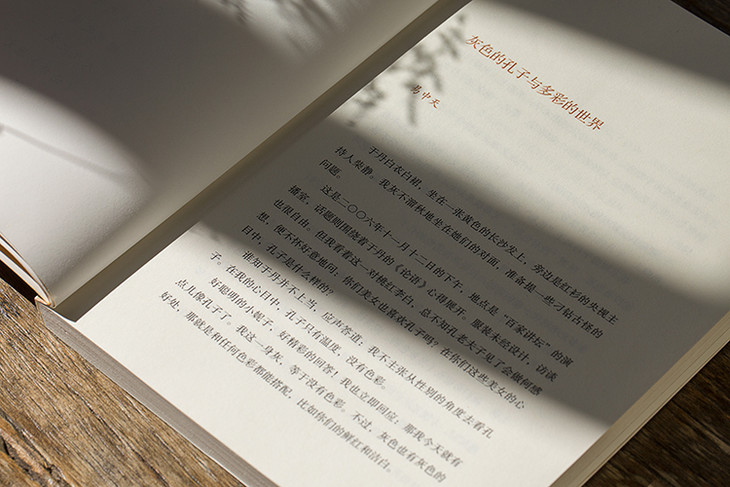 灰色的孔子与多彩的世界
易中天
于丹白衣白裙，坐在一张黄色的长沙发上，旁边是红衫的央视主
持人柴静。我灰不溜秋地坐在她们的对面，准备提一些刁钻古怪的
问题。
这是二〇〇六年十一月十二日的下午，地点是“百家讲坛”的演
播室，话题则围绕着于丹的《论语》心得展开。服装未经设计，访谈
也很自由。但我看着这一对桃红李白，总不知孔老夫子见了会做何感
想，便不怀好意地问：你们美女也喜欢孔子吗？在你们这些美女的心
目中，孔子是什么样的？
谁知于丹并不上当，应声答道：我不主张从性别的角度去看孔
子。在我的心目中，孔子只有温度，没有色彩。
好聪明的小妮子，好精彩的回答！我也立即回应：那我今天就有
点儿像孔子了。我这一身灰，等于没有色彩。不过，灰色也有灰色的
好处，那就是和任何色彩都能搭配，比如你们的鲜红和洁白。